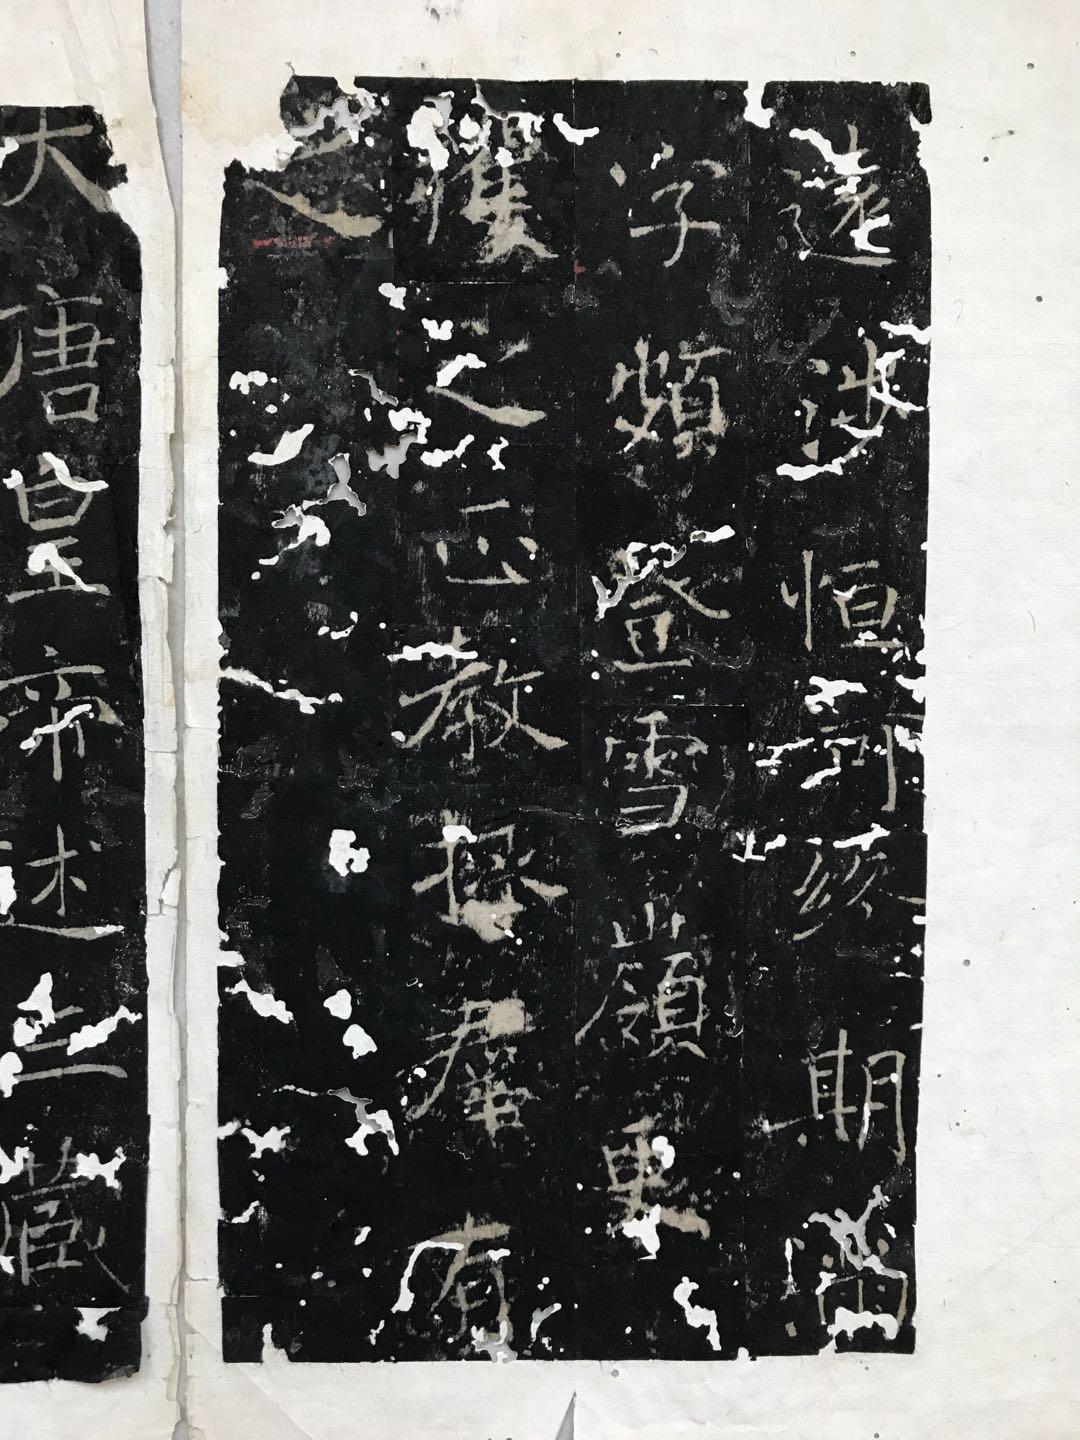 遠涉恒河終期滿
字頻登雪嶺更
獲之正教拯羣有
之
大唐皇帝述三藏